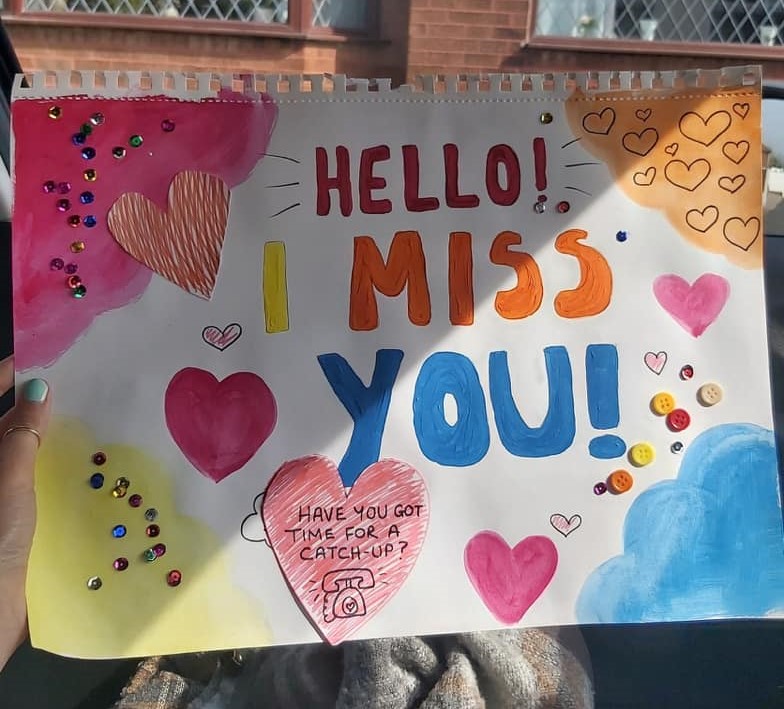 HELLO!
I MISS
YOU!
HAVE YOU GOT
TIME FOR A
CATCH-UP?